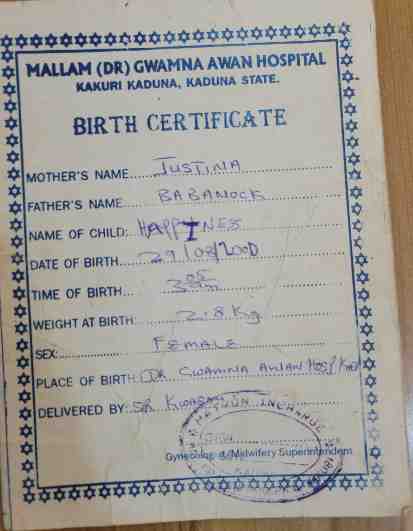 MALLAM (DR) GWAMNA AWAN HOSPITAL
KAKURI KADUNA, KADUNA STATE.
BIRTH CERTIFICATE
MOTHER'S NAME JUSTINA
FATHER'S NAME BABANOCK
NAME OF CHILD: HAPPINES
DATE OF BIRTH 29/08/2000
TIME OF BIRTH
WEIGHT AT BIRTH: 2.8Kg
SEX: FEMALE
PLACE OF BIRTH: DR GWAMNA AWAN HOSP KAD
DELIVERED BY: SR
MATRON INCHARGE
Gynecologist/Midwifery Superintendent